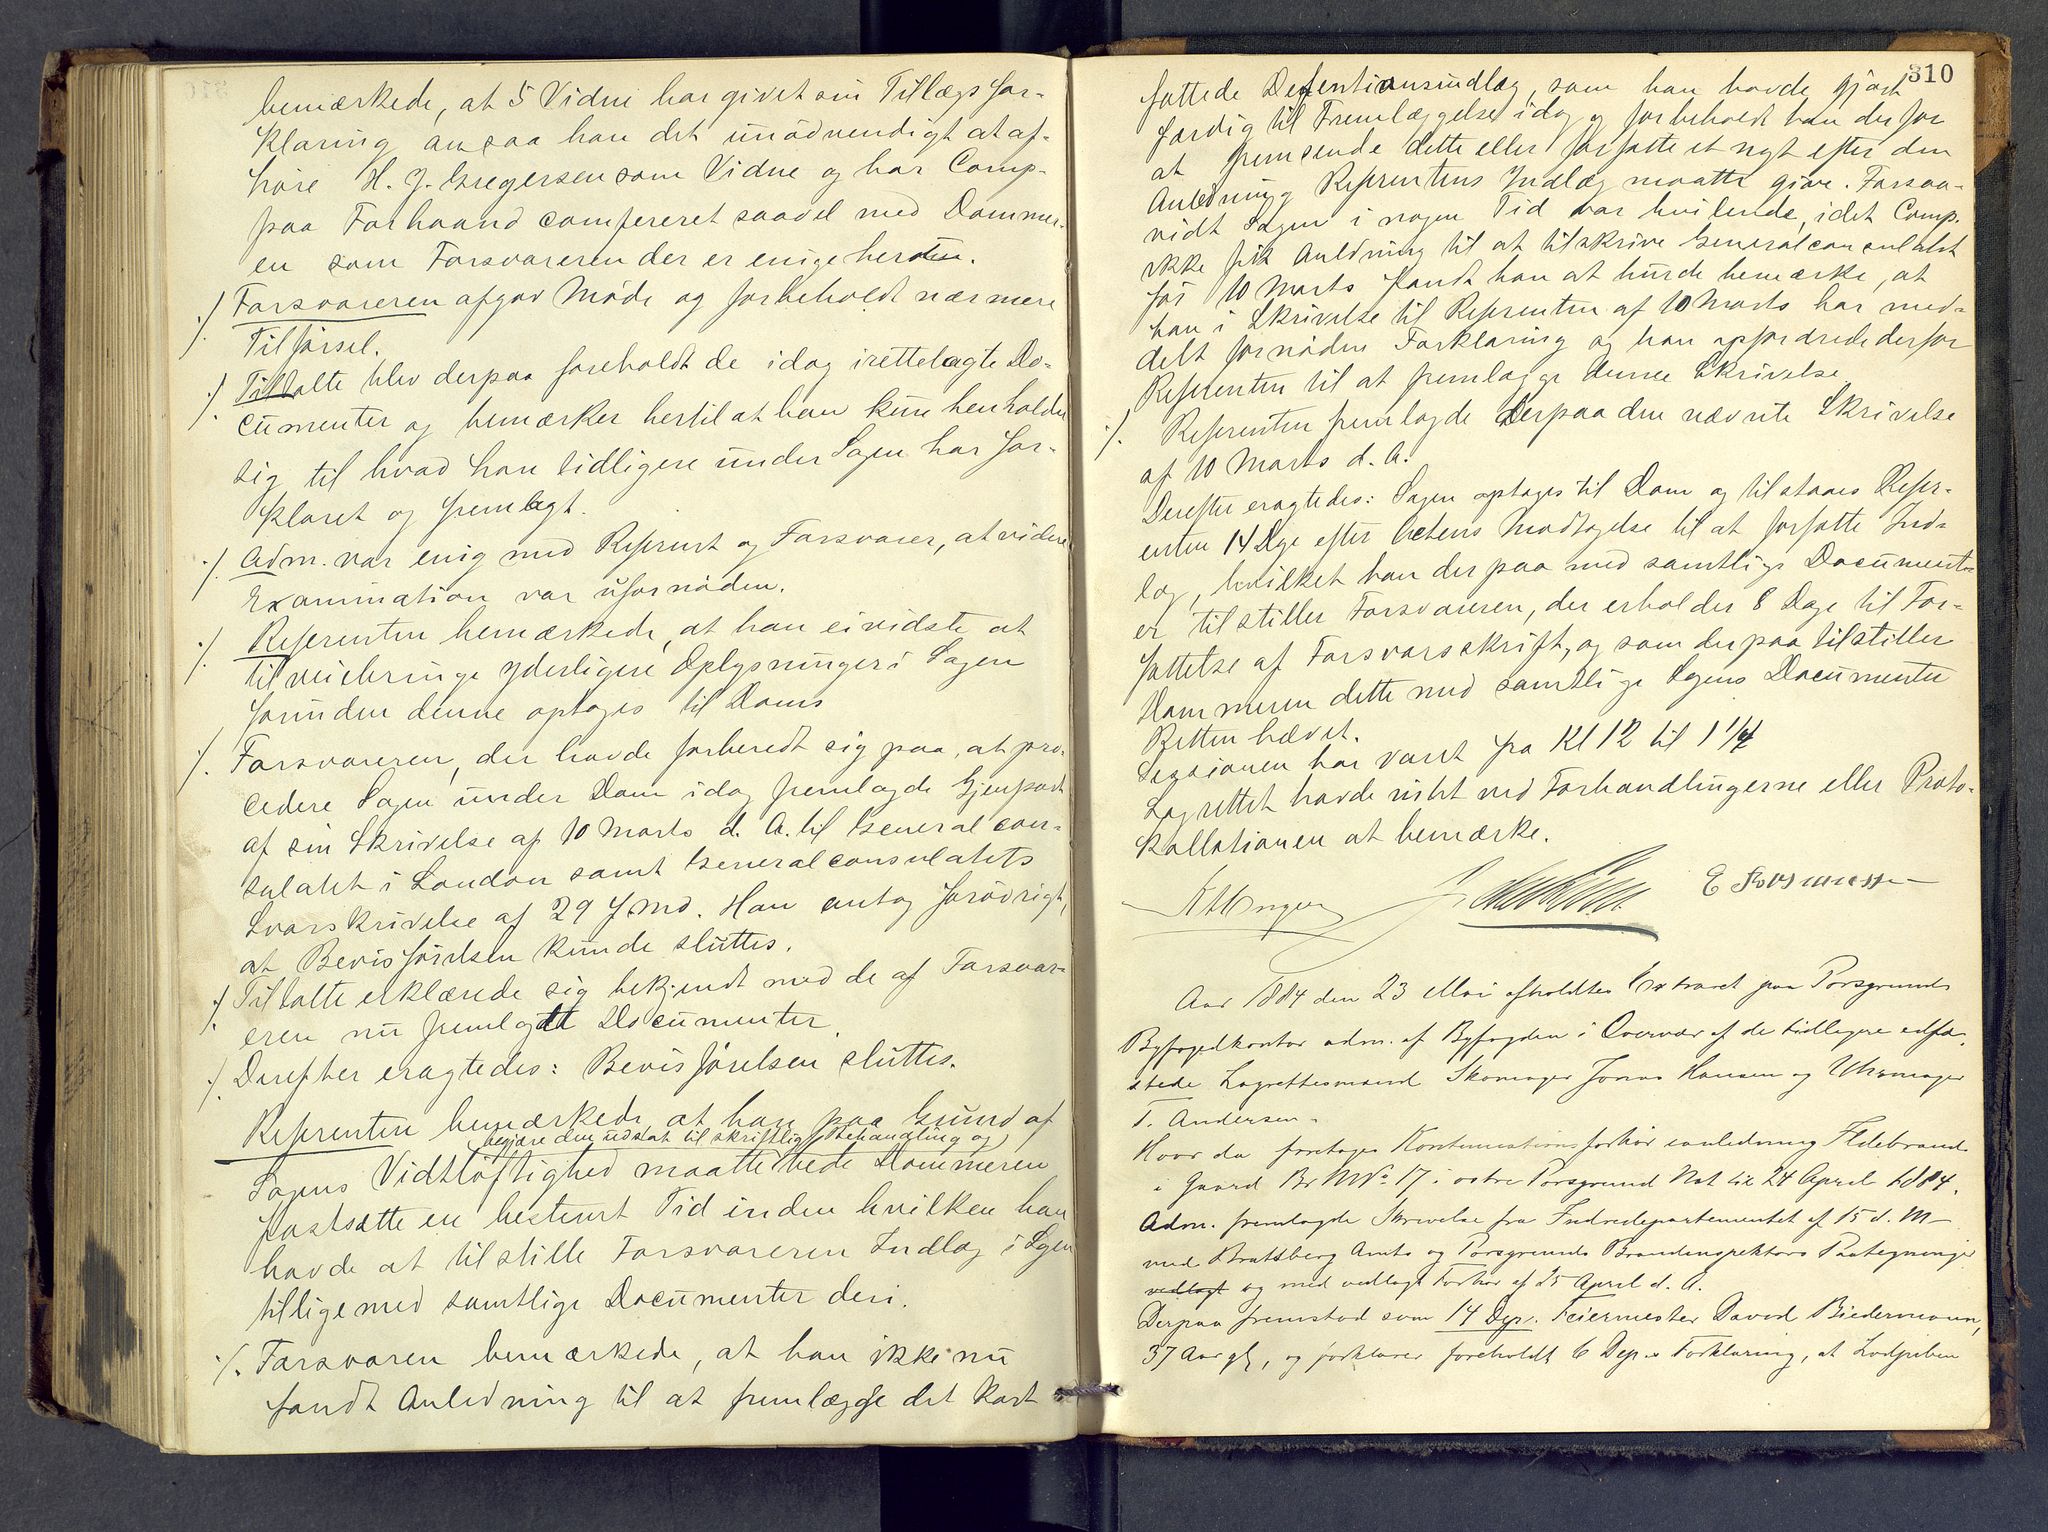 bemærkede, at 5 Vidne har givet sin Tillægsfor-
klaring ansaa han det unödvendigt at af-
höre H. J. Gregersen som Vidne og har Comp-
paa Forhaand confereret saavel med Dommer-
en som Forsvareren der er enige heruten.
./. Forsvareren afgav Möde og forbeholdt nærmere
Tilförsel.
./. Tiltalte blev derpaa foreholdt de idag irettelagte Do-
cumenter og bemærker hertil at han kun henholder
sig til hvad han tidligere under Sagen har for-
klaret og fremlagt.
./. Adm. var enig med Refrent og Forsvarer, at videre
Examination var ufornöden.
./. Refrenten bemærkede, at han ei vidste at
tilveiebringe yderligere Oplysninger i Sagen
forinden denne optages til Doms
./. Forsvareren, der havde forberedt sig paa, at pro-
cedere Sagen under Dom idag fremlagde Gjenpart
af sin Skrivelse af 10 Marts d. A. til Generalcon-
sulatet i London samt Generalconsulatets
Svarskrivelse af 29 f. Md. Han antog forövrigt,
at Bevisförelsen kunde sluttes.
./. Tiltalte erklærede sig bekjendt med de af Forsvar-
eren nu fremlagte Documenter.
./. Derefter eragtedes: Bevisförelsen sluttes.
Refrenten bemærkede at han paa Grund af
begjære den udsat til skriftlig Behandling og
Sagens Vidtlöftighed maatte bede Dommeren
fastsætte en bestemt Tid inden hvilken han
havde at tilstille Forsvareren Indlæg i Sagen
tilligemed samtlige Documenter deri.
./. Forsvaren bemærkede, at han ikke nu
fandt Anledning til at fremlægge det kort
310
fattede Defentionsindlæg, som han havde gjort
færdig til Fremlæggelse idag og forbeholdt han derfor
at fremsende dette eller forfatte et nyt efter den
Anledning Refrentens Indlæg maatte give. Forsaa-
vidt Sagen i nogen Tid var hvilende, idet Comp.
ikke fik Anledning til at tilskrive Generalconsulatet
för 10 Marts fandt han at burde bemærke, at
han i Skrivelse til Refrenten af 10 Marts har med-
delt fornöden Forklaring og han opfordrede derfor
Refrenten til at fremlægge denne Skrivelse
./. Refrenten fremlagde derpaa den nævnte Skrivelse
af 10 Marts d. A.
Derefter eragtedes: Sagen optages til Dom og tilstaaes Refr-
enten 14 Dge efter Actens Modtagelse til at forfatte Ind-
læg, hvilket han derpaa med samtlige Document-
er tilstiller Forsvareren, der erholder 8 Dage til For-
fattelse af Forsvarsskrift, og som derpaa tilstiller
Dommeren dette med samtlige Sagens Documenter
Retten hævet.
Sessionen har varet fra Kl 12 til 1 1/4
Lagrettet havde intet ved Forhandlingerne eller Proto-
kollationen at bemærke.
E Rasmussen
Aar 1884 den 23 Mai afholdtes Extraret paa Porsgrunds
Byfogedkontor adm. af Byfogden i Overvær af de tidligere edfæ-
stede Lagrettesmænd Skomager Jonas Hansen og Uhrmager
T. Andersen.
Hvor da foretages Kontinuationsforhör i anledning Ildebrand
i Gaard Br M No 17 i östre Porsgrund Nat til 24 April 1884.
Adm. fremlagde Skrivelse fra Indredepartementet af 15 d. M
med Bratsberg Amts og Porsgrunds Brandinspektörs Paategninger
vedlagt og med vedlagt Forhör af 25 April d. A.
Derpaa fremstod som 14 Dep. Feiermester David Biedermann,
37 Aar gl, og forklarer foreholdt 6 Dep.s Forklaring, at Lodpiben